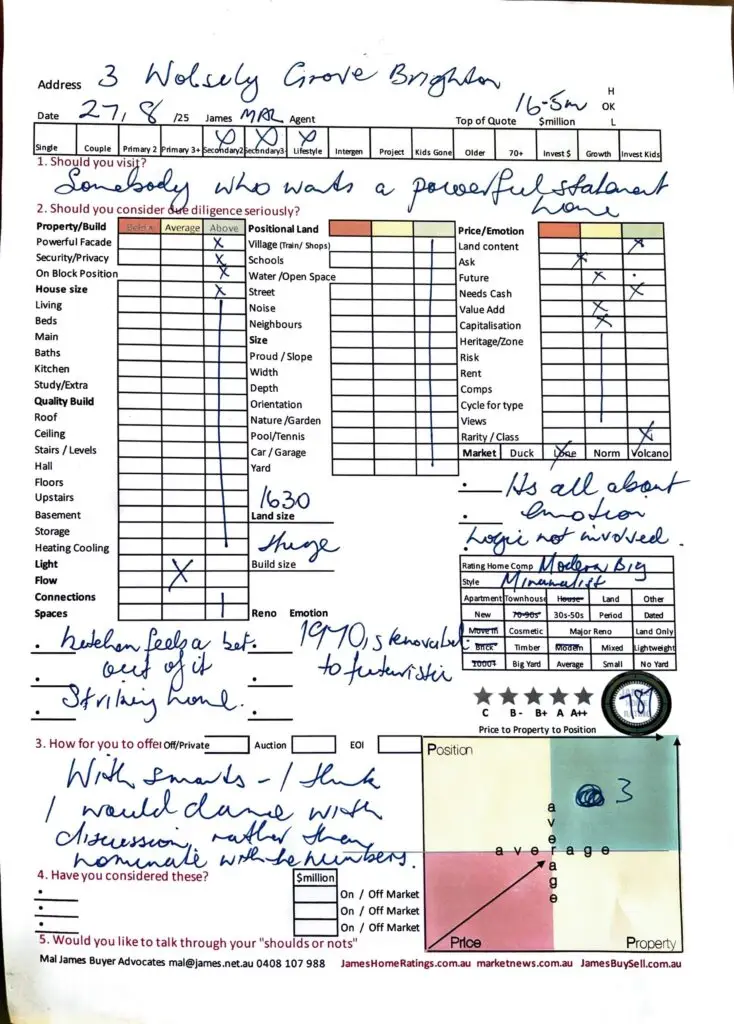 Address 3 Wolsely Grove Brighton
H
16-5m OK
Date 27, 8 /25 James MAL Agent Top of Quote $million L
Single Couple Primary 2 Primary 3+ Secondary2 Secondary3 Lifestyle Intergen Project Kids Gone Older 70+ Invest $ Growth Invest Kids
1. Should you visit?
Somebody who wants a powerful statement
home
2. Should you consider due diligence seriously?
Property/Build Below Average Above
Powerful Facade X
Security/Privacy X
On Block Position X
House size X
Living
Beds
Main
Baths
Kitchen
Study/Extra
Quality Build
Roof
Ceiling
Stairs / Levels
Hall
Floors
Upstairs
Basement
Storage
Heating Cooling
Light
Flow X
Connections
Spaces
Positional Land
Village (Train/ Shops)
Schools
Water /Open Space
Street
Noise
Neighbours
Size
Proud / Slope
Width
Depth
Orientation
Nature /Garden
Pool/Tennis
Car / Garage
Yard
1630
Land size
Huge
Build size
Reno Emotion
Price/Emotion
Land content X
Ask X
Future X
Needs Cash X
Value Add X
Capitalisation X
Heritage/Zone
Risk
Rent
Comps
Cycle for type
Views
Rarity / Class X
Market Duck Norm Volcano
Its all about
emotion
Logic not involved.
Rating Home Comp Modern Big
Style Minamalist
Apartment Townhouse House Land Other
New 70-90s' 30s-50s Period Dated
Move in Cosmetic Major Reno Land Only
Brick Timber Modern Mixed Lightweight
1000+ Big Yard Average Small No Yard
• kitchen feels a bet
• out of it
• Striking home.
• 1970,s
• to futuristic
•
C B- B+ A A++
787
Price to Property to Position
3. How for you to offer Off/Private Auction EOI
With smarts - I think
I would dance with
discussion, rather than
nominate with the numbers.
Position
3
average
average
Price Property
4. Have you considered these? $million
• On / Off Market
• On / Off Market
• On / Off Market
5. Would you like to talk through your "shoulds or nots"
Mal James Buyer Advocates mal@james.net.au 0408 107 988 JamesHomeRatings.com.au marketnews.com.au JamesBuySell.com.au